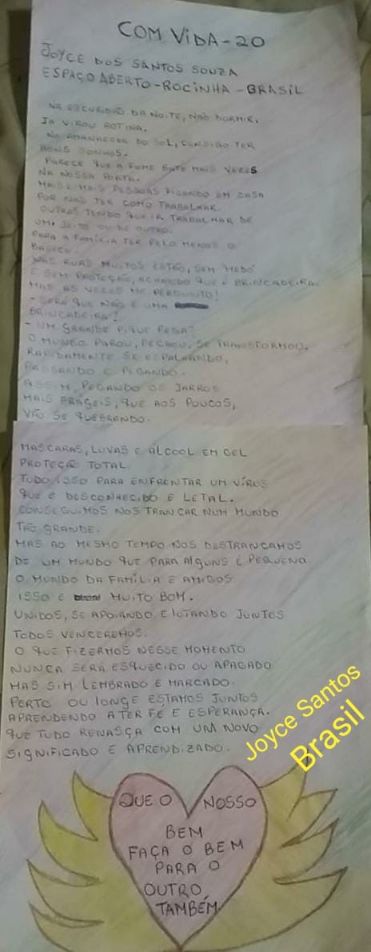 COM VIDA-20
JOYCE DOS SANTOS SOUZA
ESPAÇO ABERTO-ROCINHA-BRASIL
NA ESCURIDÃO DA NOITE, NÃO DORMIR,
JÁ VIROU ROTINA.
NO AMANHECER DO SOL, CONSIGO TER
BONS SONHOS.
PARECE QUE A FOME BATE MAIS VEZES
NA NOSSA PORTA.
MAIS E MAIS PESSOAS FICANDO EM CASA
POR NÃO TER COMO TRABALHAR.
OUTROS TENDO QUE IR TRABALHAR DE
UM JEITO OU DE OUTRO.
PARA A FAMÍLIA TER PELO MENOS O
BÁSICO.
NAS RUAS MUITOS ESTÃO, SEM MEDO
E SEM PROTEÇÃO, ACHANDO QUE É BRINCADEIRA.
MAS ÀS VEZES ME PERGUNTO!
- SERÁ QUE NÃO É UMA
BRINCADEIRA?
- UM GRANDE PIQUE PEGA?
O MUNDO PAROU, PECOU, SE TRANSFORMOU.
RAPIDAMENTE SE ESPALHANDO,
PASSANDO E PEGANDO.
ASSIM, PEGANDO OS JARROS
MAIS FRÁGEIS, QUE AOS POUCOS,
VÃO SE QUEBRANDO.
MASCARAS, LUVAS E ÁLCOOL EM GEL
PROTEÇÃO TOTAL.
TUDO ISSO PARA ENFRENTAR UM VÍRUS
QUE É DESCONHECIDO E LETAL.
CONSEGUIMOS NOS TRANCAR NUM MUNDO
TÃO GRANDE.
MAS AO MESMO TEMPO NOS DESTRANCAMOS
DE UM MUNDO QUE PARA ALGUNS É PEQUENO
O MUNDO DA FAMÍLIA E AMIGOS.
ISSO É MUITO BOM.
UNIDOS, SE APOIANDO E LUTANDO JUNTOS
TODOS VENCEREMOS.
O QUE FIZERMOS NESSE MOMENTO
NUNCA SERÁ ESQUECIDO OU APAGADO
MAS SIM LEMBRADO E MARCADO.
PERTO OU LONGE ESTAMOS JUNTOS
APRENDENDO A TER FÉ E ESPERANÇA.
QUE TUDO RENASÇA COM UM NOVO
SIGNIFICADO E APRENDIZADO.
Joyce Santos
Brasil
QUE O NOSSO
BEM
FAÇA O BEM
PARA O
OUTRO,
TAMBÉM